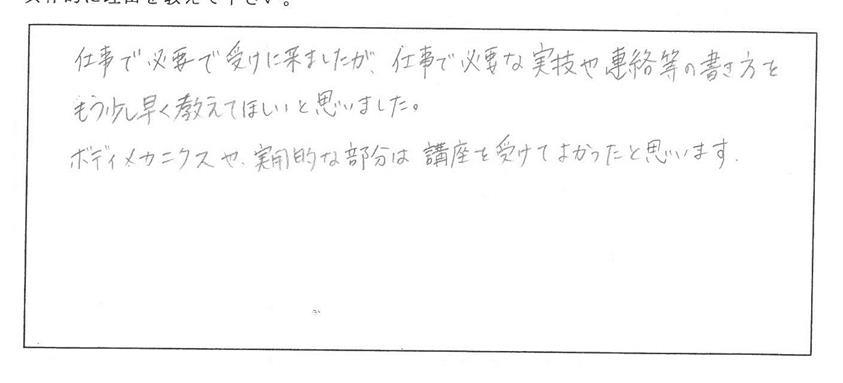 具体的に理由を教えて下さい。
仕事で必要で受けに来ましたが、仕事で必要な実技や連絡等の書き方を
もう少し早く教えてほしいと思いました。
ボディメカニクスや、実用的な部分は講座を受けてよかったと思います.